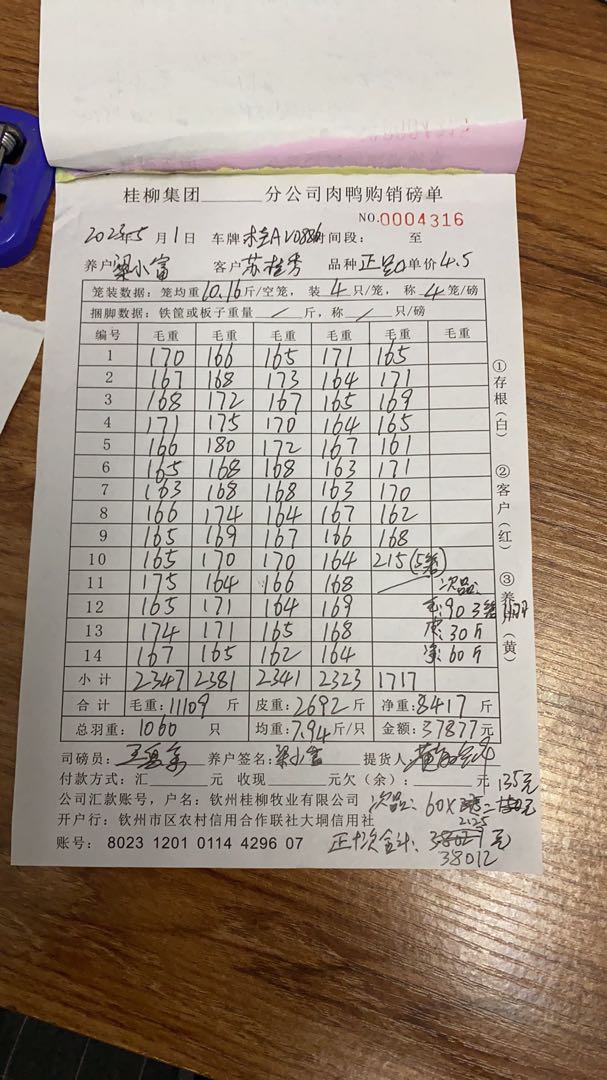 桂柳集团______分公司肉鸭购销磅单
NO.0004316
2023年5月1日 车牌 桂AV0886 时间段: 至
养户 梁小富 客户 苏桂秀 品种 正品 单价 4.5
笼装数据:笼均重 10.16 斤/空笼,装 4 只/笼,称 4 笼/磅
捆脚数据:铁筐或板子重量 / 斤,称 / 只/磅
编号 毛重 毛重 毛重 毛重 毛重 毛重
1 170 166 165 171 165
2 167 168 173 164 171
3 168 172 167 165 169
4 171 175 170 164 165
5 166 180 172 167 161
6 165 168 168 163 171
7 163 168 168 163 170
8 166 174 164 167 162
9 165 169 167 166 168
10 165 170 170 164 215 (5笼)
11 175 164 166 168 / 次品:
12 165 171 164 169 毛:90 3笼
13 174 171 165 168 皮:30斤
14 167 165 162 164 净:60斤
小计 2347 2381 2341 2323 1717
合计 毛重:11109 斤 皮重:2692 斤 净重:8417 斤
总羽重:1060 只 均重:7.94 斤/只 金额:37877 元
司磅员: 养户签名:梁小富 提货人:
付款方式:汇______元 收现______元欠(余):______元 135元
公司汇款账号,户名:钦州桂柳牧业有限公司 次品:60×
2.25
开户行:钦州市区农村信用合作联社大垌信用社
正+次合计: 元
账号:8023 1201 0114 4296 07
38012
①存根(白)
②客户(红)
③养户(黄)